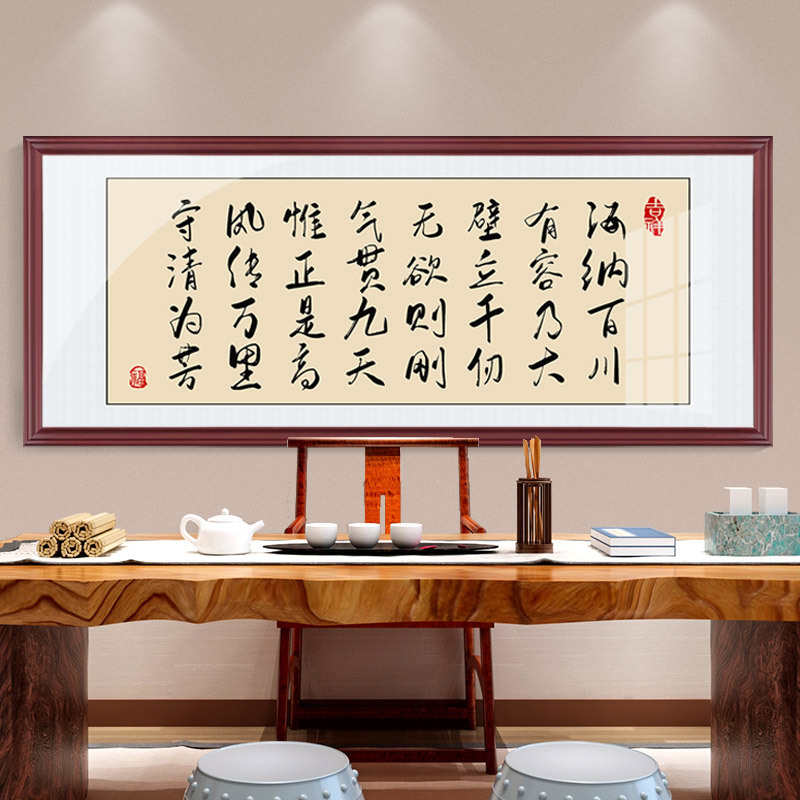 吉祥
海纳百川
有容乃大
壁立千仞
无欲则刚
气贯九天
惟正是高
风传万里
守清为芳